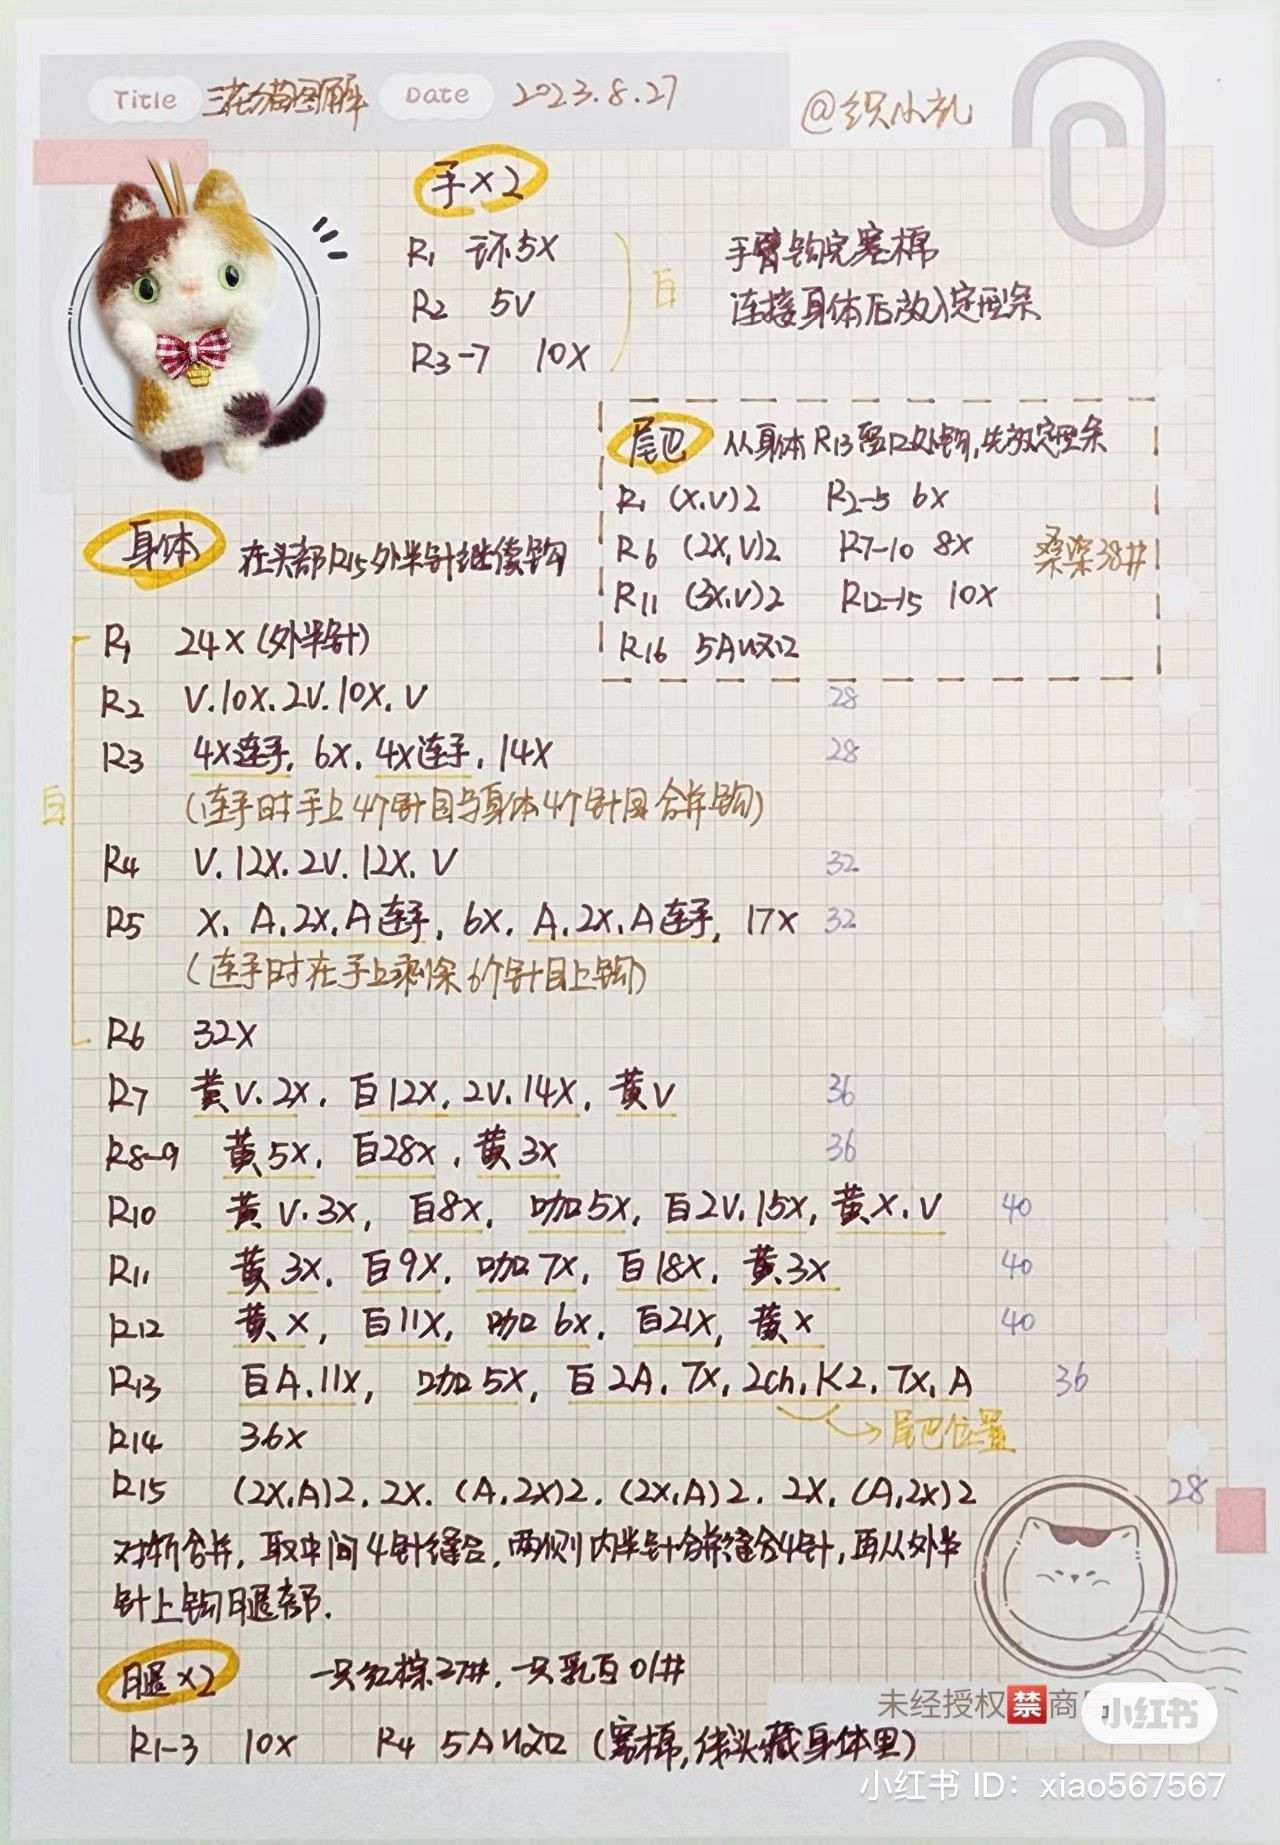 Title 三花猫图解 Date 2023.8.27 @织小礼
手×2
R1 环5X
R2 5V
R3-7 10X
白
手臂钩完塞棉
连接身体后放入定型条
尾巴 从身体R13留口处钩,先放定型条
R1 (X.V)2 R2-5 6X
R6 (2X,V)2 R7-10 8X
桑染38#
R11 (3X.V)2 R12-15 10X
R16 5A收口
身体 在头部R15外半针继续钩
R1 24X(外半针)
R2 V.10X.2V.10X.V 28
R3 4X连手,6X.4X连手.14X 28
白
(连手时手上4个针目与身体4个针目合并钩)
R4 V.12X.2V.12X.V 32
R5 X.A.2X.A连手,6X.A.2X.A连手,17X 32
(连手时在手上剩余6个针目上钩)
R6 32X
R7 黄V.2X,白12X.2V.14X,黄V 36
R8-9 黄5X,白28X,黄3X 36
R10 黄V.3X,白8X,咖5X,白2V.15X,黄X.V 40
R11 黄3X,白9X,咖7X,白18X,黄3X 40
R12 黄X,白11X,咖6X,白21X,黄X 40
R13 白A.11X,咖5X,白2A.7X,2ch,K2,7X,A 36
尾巴位置
R14 36X
R15 (2X,A)2,2X,(A,2X)2,(2X,A)2,2X,(A,2X)2 28
对折合并,取中间4针缝合,两侧内半针合并缝合4针,再从外半
针上钩腿部.
腿×2 一只红棕27#,一只乳白01#
R1-3 10X R4 5A收口(塞棉,线头藏身体里)
未经授权禁商
小红书
小红书 ID: xiao567567